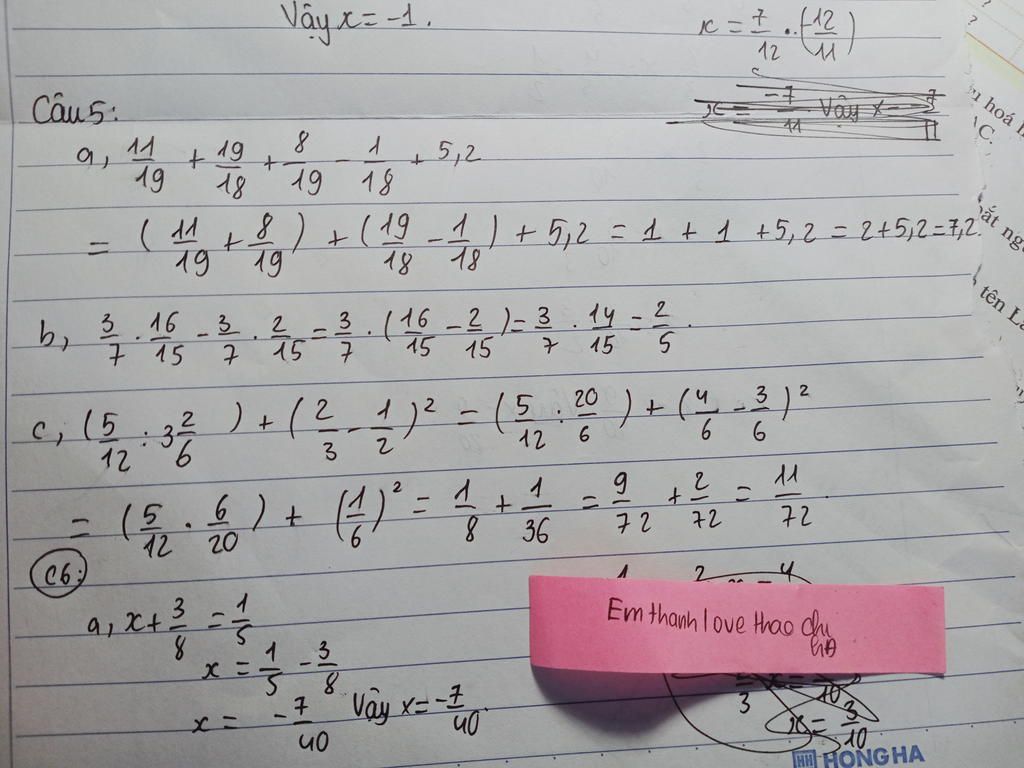 Vậy x = -1.
x = 7/12 . (12/11)
Câu 5:
a, 11/19 + 19/18 + 8/19 - 1/18 + 5,2
= (11/19 + 8/19) + (19/18 - 1/18) + 5,2 = 1 + 1 + 5,2 = 2 + 5,2 = 7,2.
b, 3/7 . 16/15 - 3/7 . 2/15 = 3/7 . (16/15 - 2/15) = 3/7 . 14/15 = 2/5.
c, (5/12 : 3 2/6) + (2/3 - 1/2)² = (5/12 : 20/6) + (4/6 - 3/6)²
= (5/12 . 6/20) + (1/6)² = 1/8 + 1/36 = 9/72 + 2/72 = 11/72.
C6:
a, x + 3/8 = 1/5
x = 1/5 - 3/8
x = -7/40 Vậy x = -7/40.
Em thanh love thao chi
x = 3/10
HONG HA
hoá
C.
tên